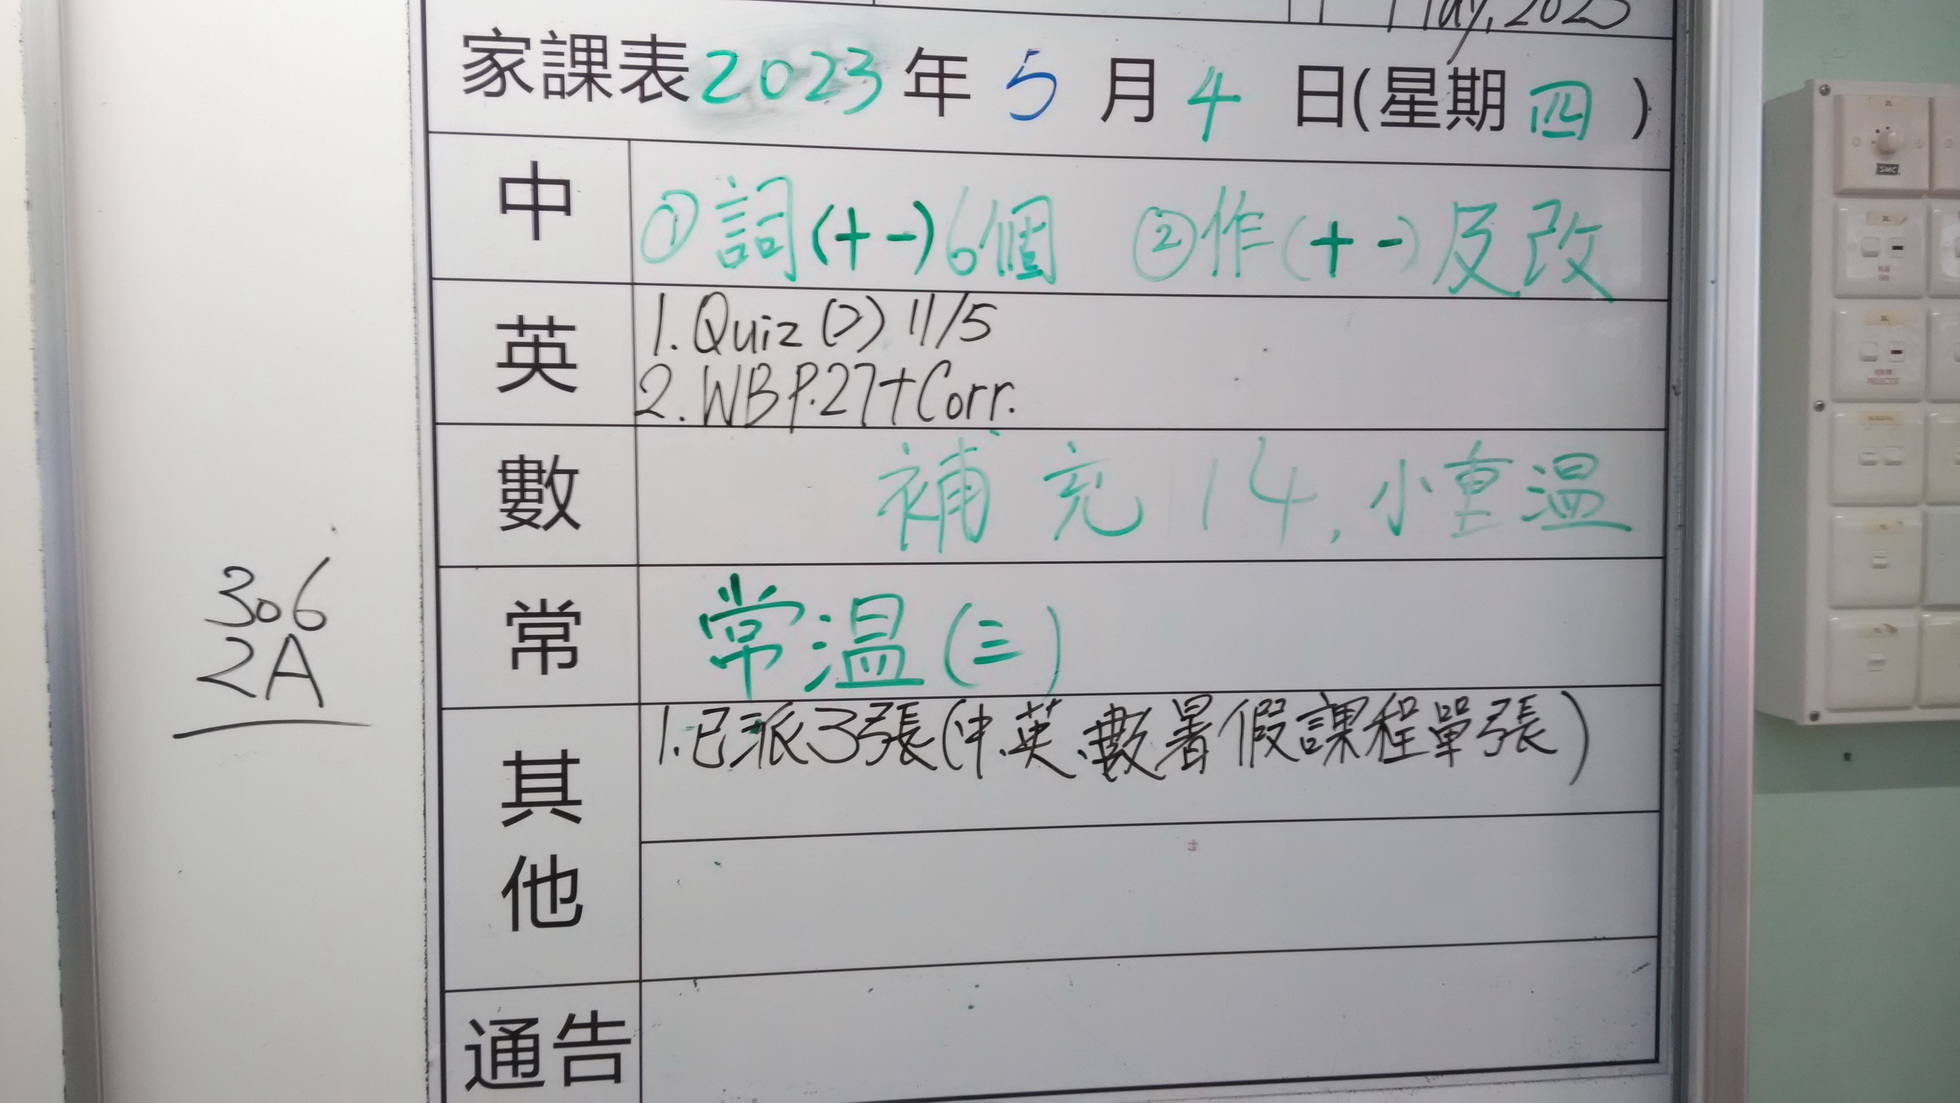 May, 2023
家課表 2023 年 5 月 4 日(星期 四 )
中 ①詞(+-)6個 ②作(+-)及改
英 1. Quiz (7) 11/5
2. WB P.27+Corr.
數 補充14, 小重温
常 常温(三)
其他 1.已派3張(中.英.數暑假課程單張)
通告
306
2A